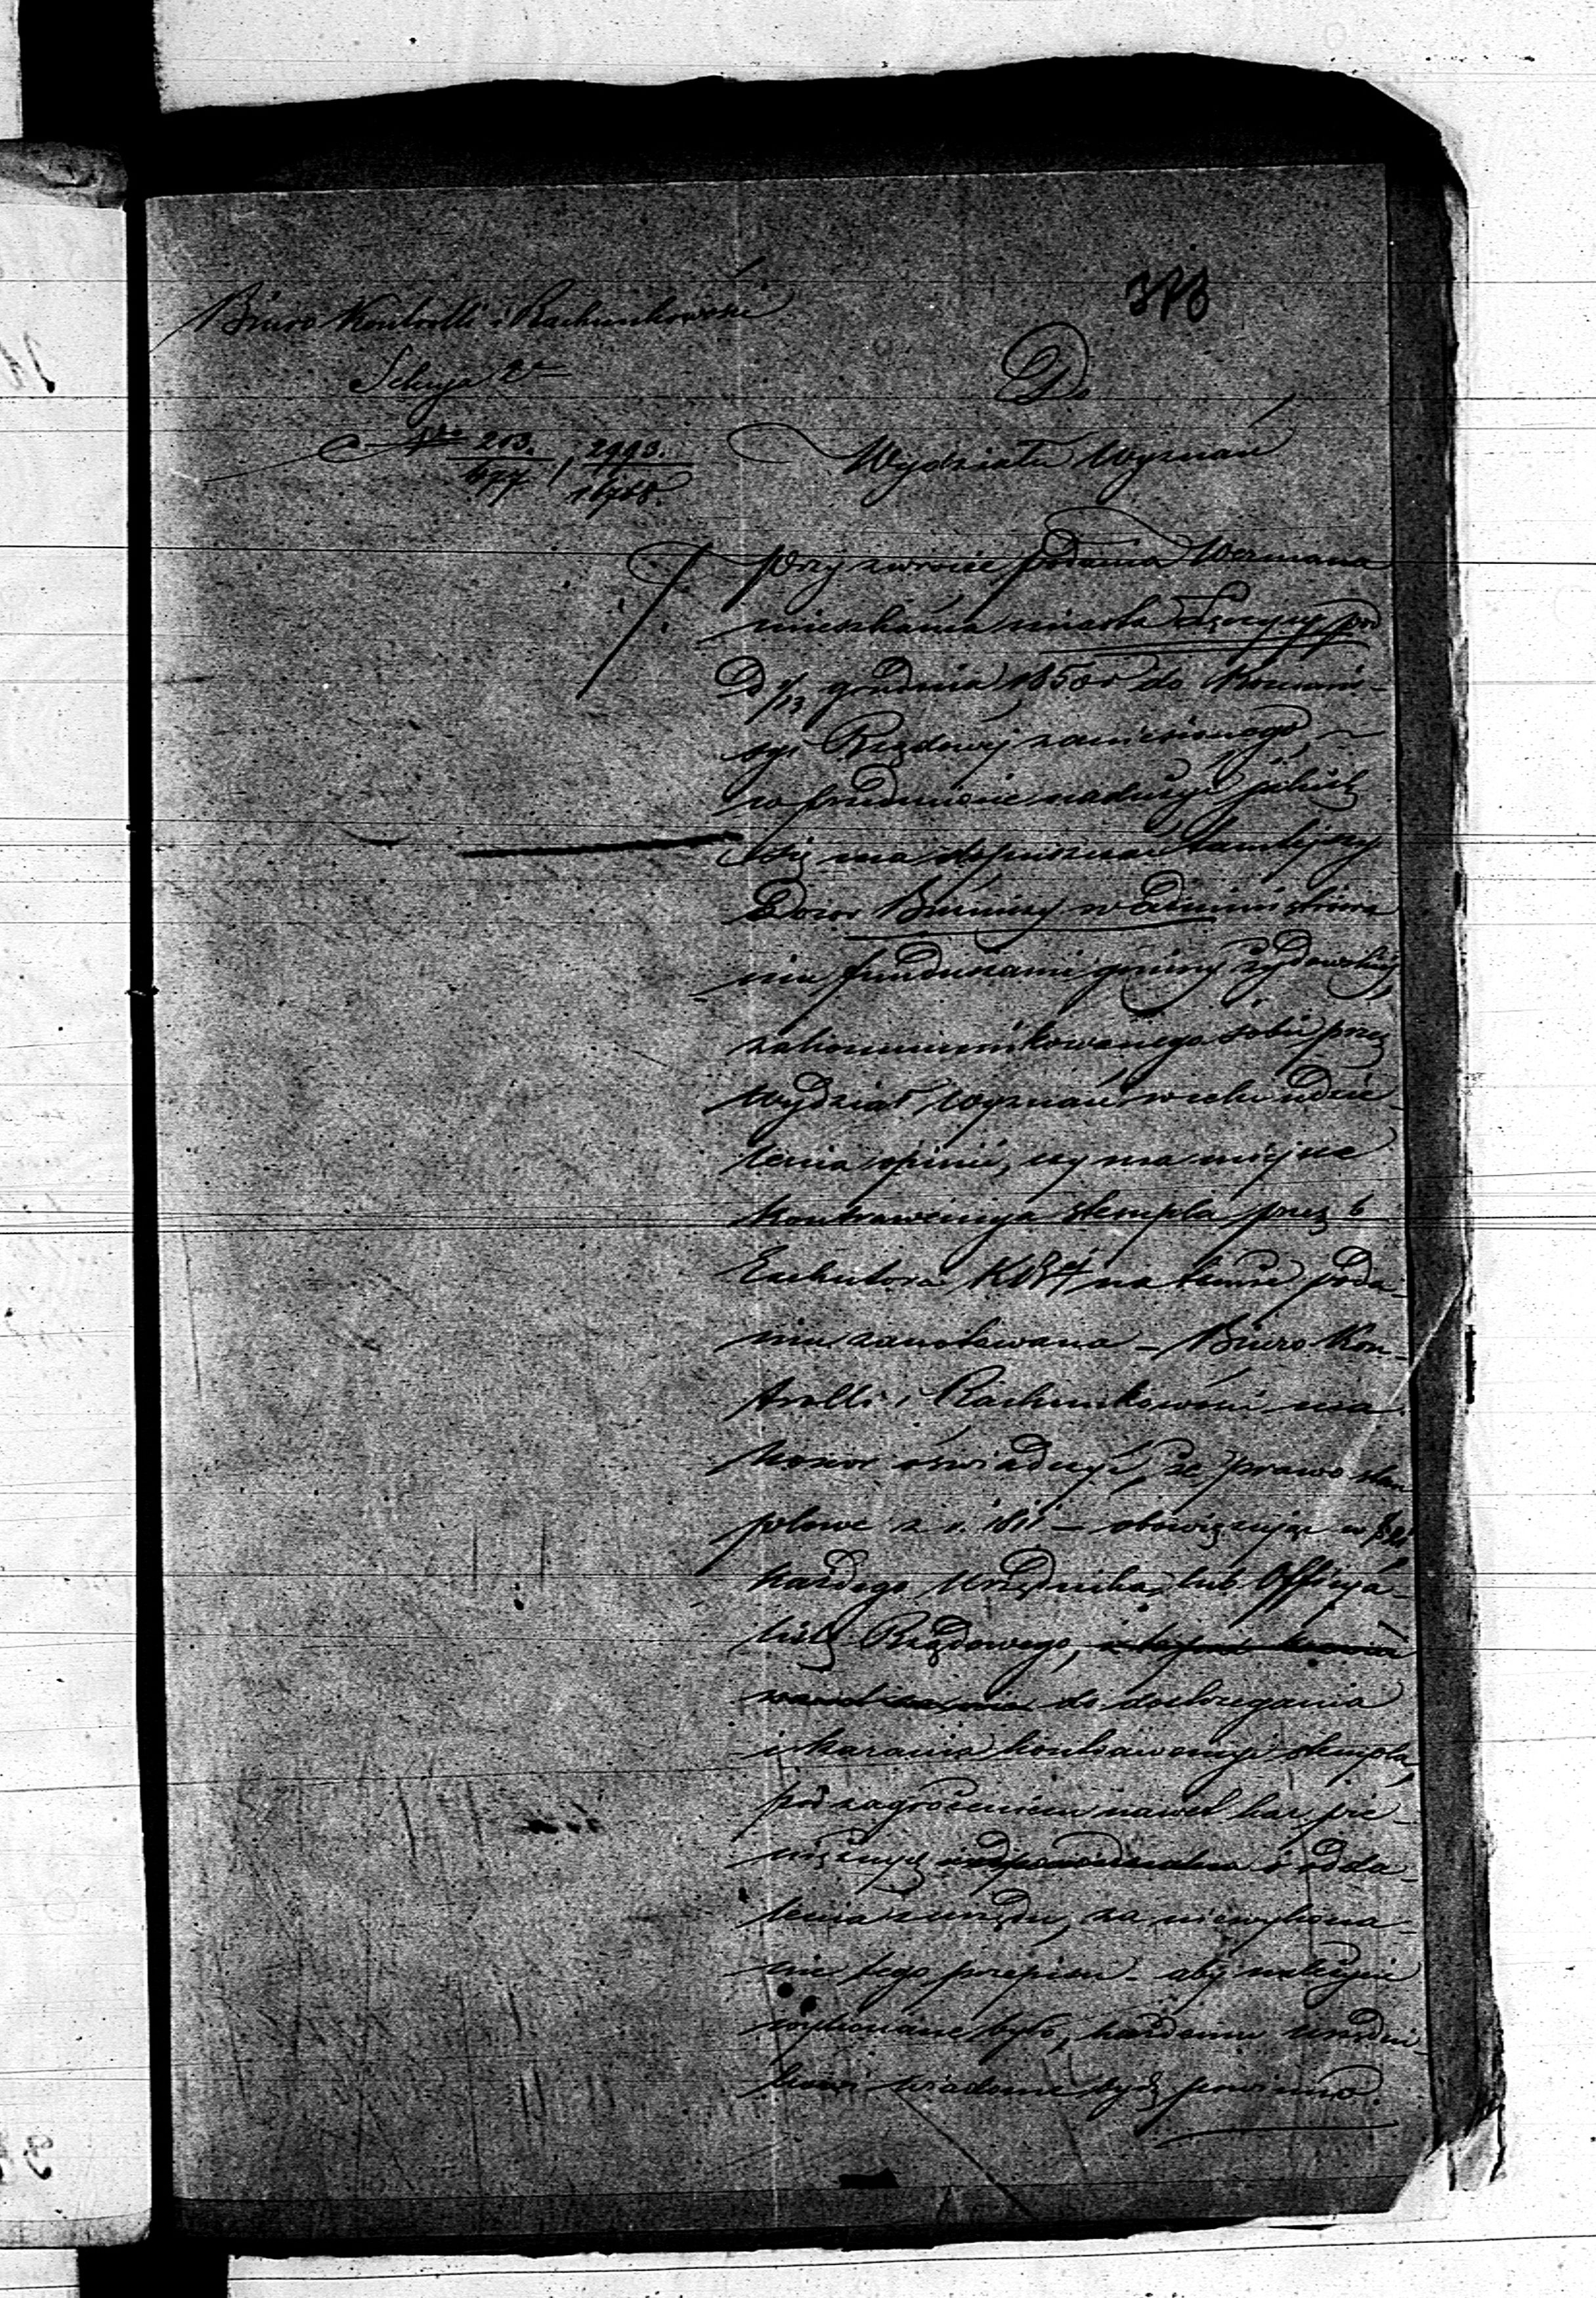 378
Biuro Kontrolli i Rachunkowości
Sekcya
Nro 213. / 2993.
677 / 16768.
Do
Wydziału Wyznań
Przy zwrocie podania Wermana
mieszkańca miasta Łęczycy pod
D 1/13 grudnia 1850 r do Kommis-
syi Rządowej zaniesionego,
w przedmiocie nadużyć jakich
się ma dopuszczać tamtejszy
Dozór Bóżniczy w Administrowa
niu funduszami gminy Żydowskiej,
zakommunikowanego sobie przez
Wydział Wyznań w celu udzie-
lenia opinii, czy ma miejsce
Kontrawencya stempla przez
Exekutora na temże poda-
niu zanotowana – Biuro Kon-
trolli i Rachunkowości ma
honor oświadczyć, że prawo stem
plowe z r. 1811 – obowiązując w
każdego Urzędnika, lub Officya-
listę Rządowego,
do dostrzegania
i karania kontrawencyi stempla,
pod zagrożeniem nawet kar pie-
niężnych i odda-
lenia z urzędu, za niewykona-
nie tego przepisu – aby należycie
wykonane było, każdemu urzędni-
kowi wiadome bydź powinno.